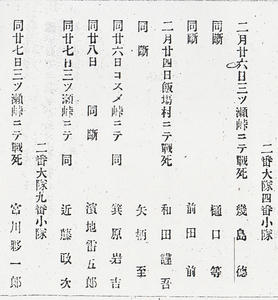 二番大隊四番小隊
二月廿六日三ツ瀬峠ニテ戰死 幾島 德
同斷 樋口 等
同斷 前田 前
二月廿四日飯塲村ニテ戰死 和田謹吾
同斷 矢柄 至
同廿六日コスメ峠ニテ同 箕原岩吉
同廿八日 同斷 濵地雷五郎
同廿七日三ツ瀬峠ニテ 同 近藤政次
二番大隊九番小隊
同廿七日三ツ瀬峠ニテ戰死 宮川彨一郎